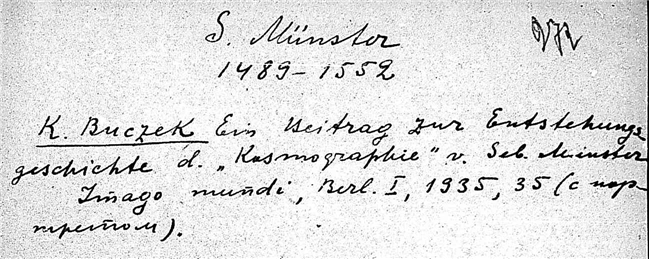 S. Münster
1489-1552
K. Buczek Ein Beitrag zur Entstehungs
geschichte d. "Kosmographie" v. Seb. Münster
Imago mundi, Berl. I, 1935, 35 (с пор-
третом).